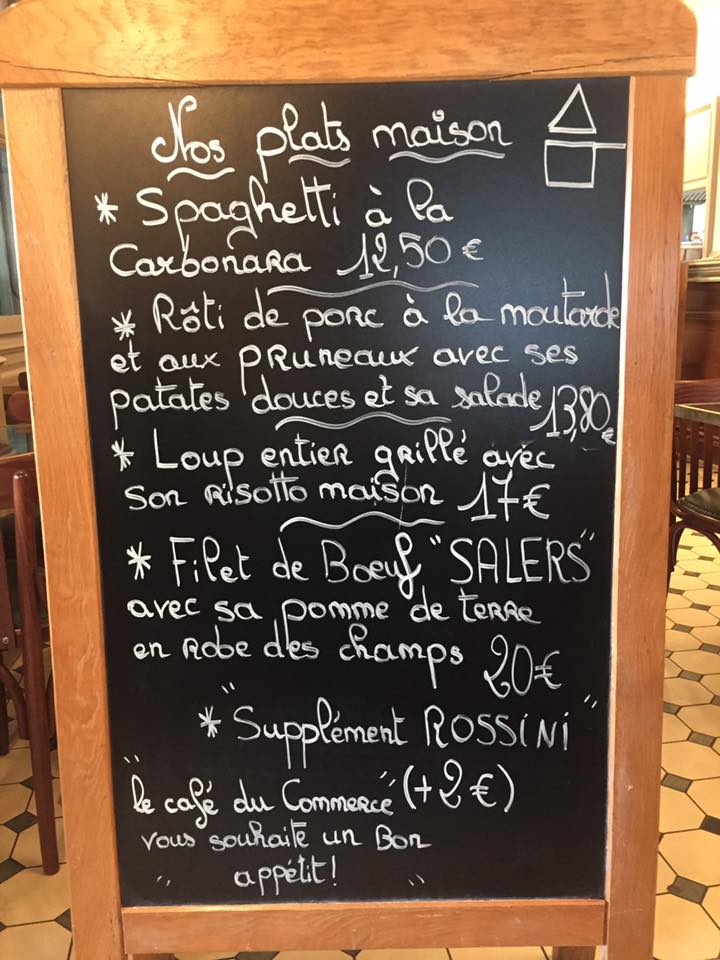 Nos plats maison
* Spaghetti à la
Carbonara 12,50 €
* Rôti de porc à la moutarde
et aux pruneaux avec ses
patates douces et sa salade 13,80 €
* Loup entier grillé avec
son risotto maison 17 €
* Filet de Boeuf "SALERS"
avec sa pomme de terre
en robe des champs 20 €
* "Supplément ROSSINI"
(+2 €)
"le café du Commerce"
vous souhaite un Bon
" appétit! "